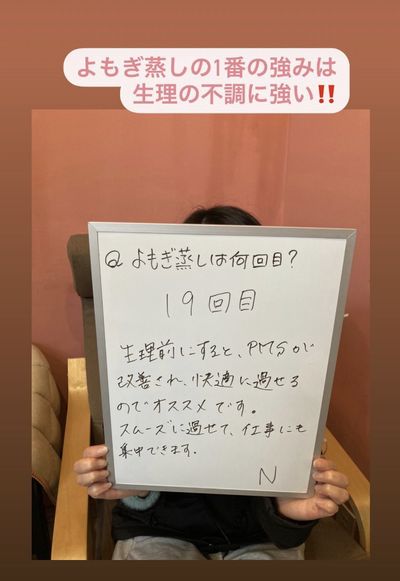 よもぎ蒸しの1番の強みは
生理の不調に強い‼️
Q よもぎ蒸しは何回目?
19回目
生理前にすると、PMSが
改善され、快適に過せる
のでオススメです。
スムーズに過せて、仕事にも
集中できます。
N